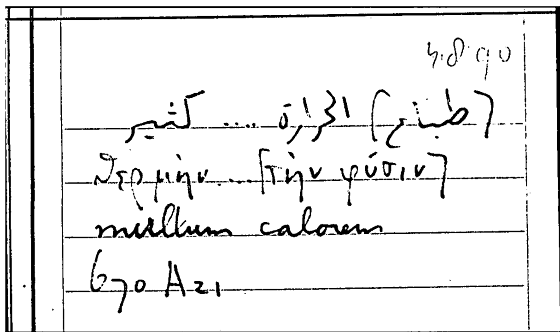 [طباع] الحرارة .... كثير
θερμὴν ... [τὴν φύσιν]
multum calorem
670 A21